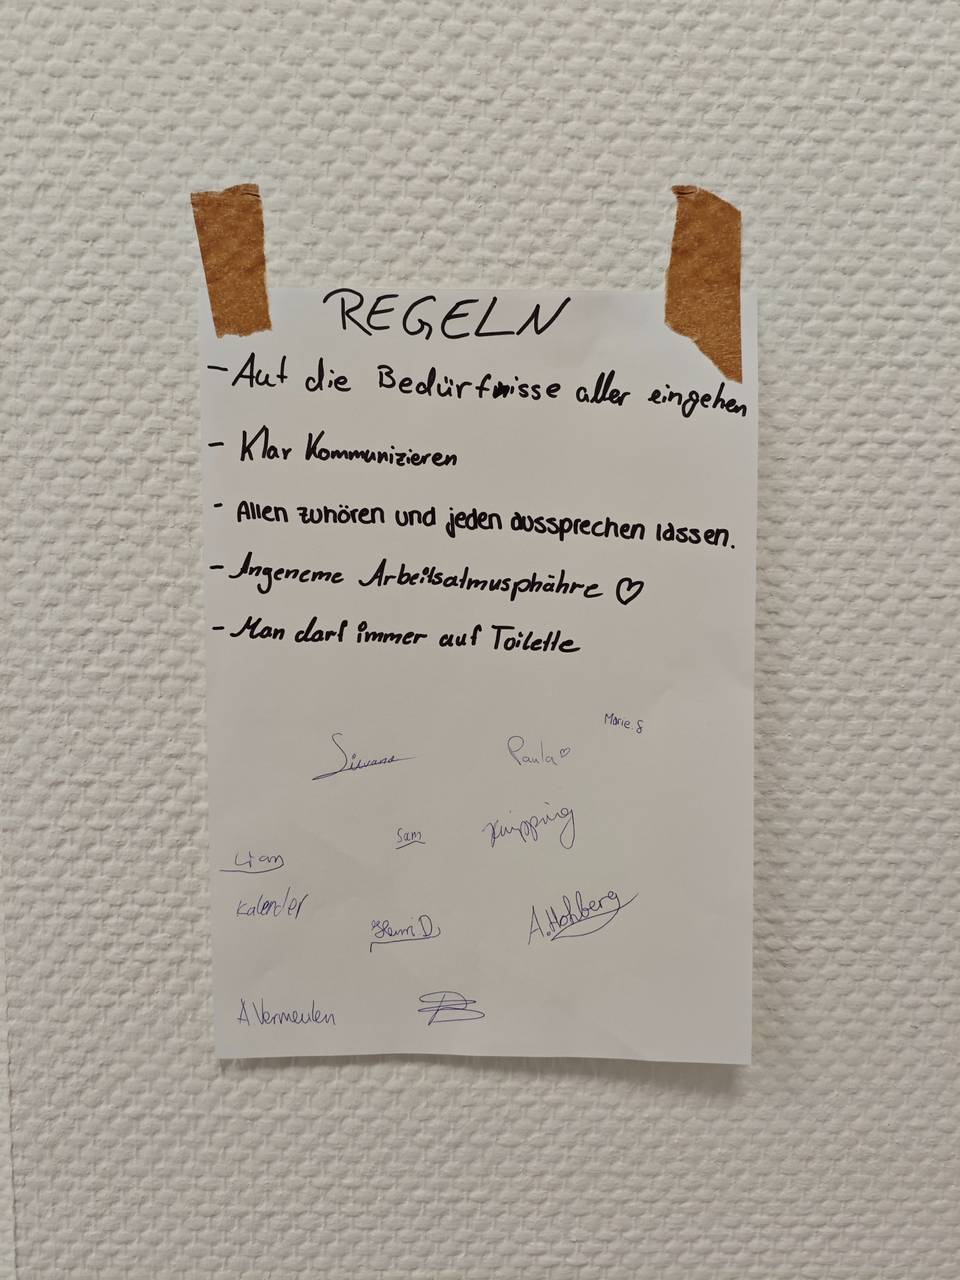 REGELN
- Auf die Bedürfnisse aller eingehen
- Klar Kommunizieren
- Allen zuhören und jeden aussprechen lassen.
- Angeneme Arbeitsatmusphähre ♡
- Man darf immer auf Toilette
Marie.S
Paula ♡
Sam
Knipping
Lian
Kalender
Henri.D.
A.Hohberg
A.Vermeulen